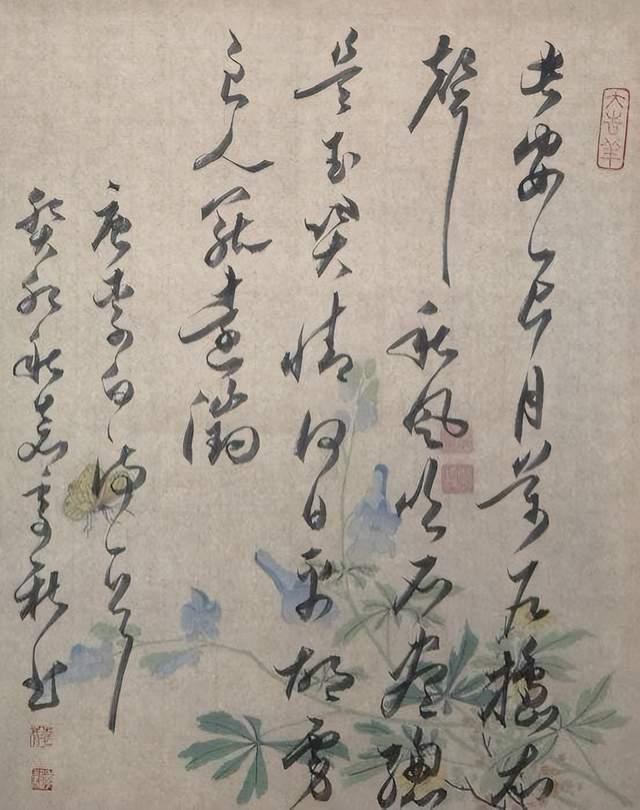 大吉羊
長安一片月萬戶擣衣
聲秋風吹不盡總
是玉關情何日平胡虜
良人罷遠徵
唐李白詩一首
癸卯秋